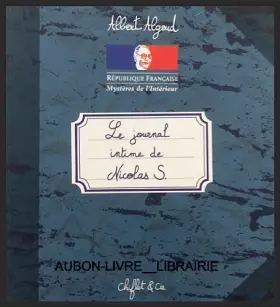 Albert Algoud
RÉPUBLIQUE FRANÇAISE
Mystères de l'Intérieur
Le journal
intime de
Nicolas S.
AUBON-LIVRE__LIBRAIRIE
Chiflet & Cie